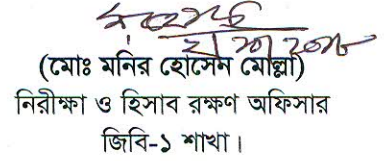 (মোঃ মনির হোসেন মোল্লা)
নিরীক্ষা ও হিসাব রক্ষণ অফিসার
জিবি-১ শাখা।